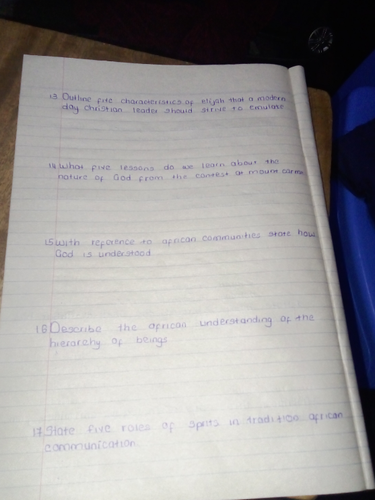 13 Outline five characteristics of elijah that a modern
day Christian leader should strive to emulate
14 What five lessons do we learn about the
nature of God from the contest at mount carmel
15 With reference to african communities state how
God is understood
16 Describe the african understanding of the
hierarchy of beings
17 State five roles of spirits in tradition african
communication.